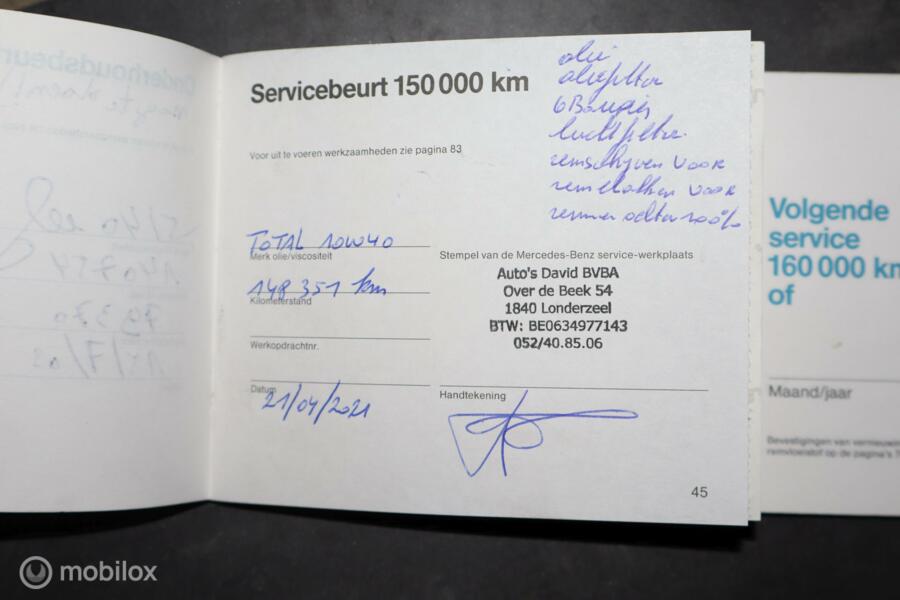 Servicebeurt 150 000 km
olie
oliefilter
6 Bougies
luchtfilter
remschijven voor
remblokken voor
remmen achter 100%
Voor uit te voeren werkzaamheden zie pagina 83
TOTAL 10W40
Merk olie/viscositeit
148 351 km
Kilometerstand
Werkopdrachtnr.
Datum
21/04/2021
Stempel van de Mercedes-Benz service-werkplaats
Auto's David BVBA
Over de Beek 54
1840 Londerzeel
BTW: BE0634977143
052/40.85.06
Handtekening
45
Volgende
service
160 000 km
of
Maand/jaar
Bevestigingen van
remvloeistof op de pagina's
Onderhoudsbeur
mobilox